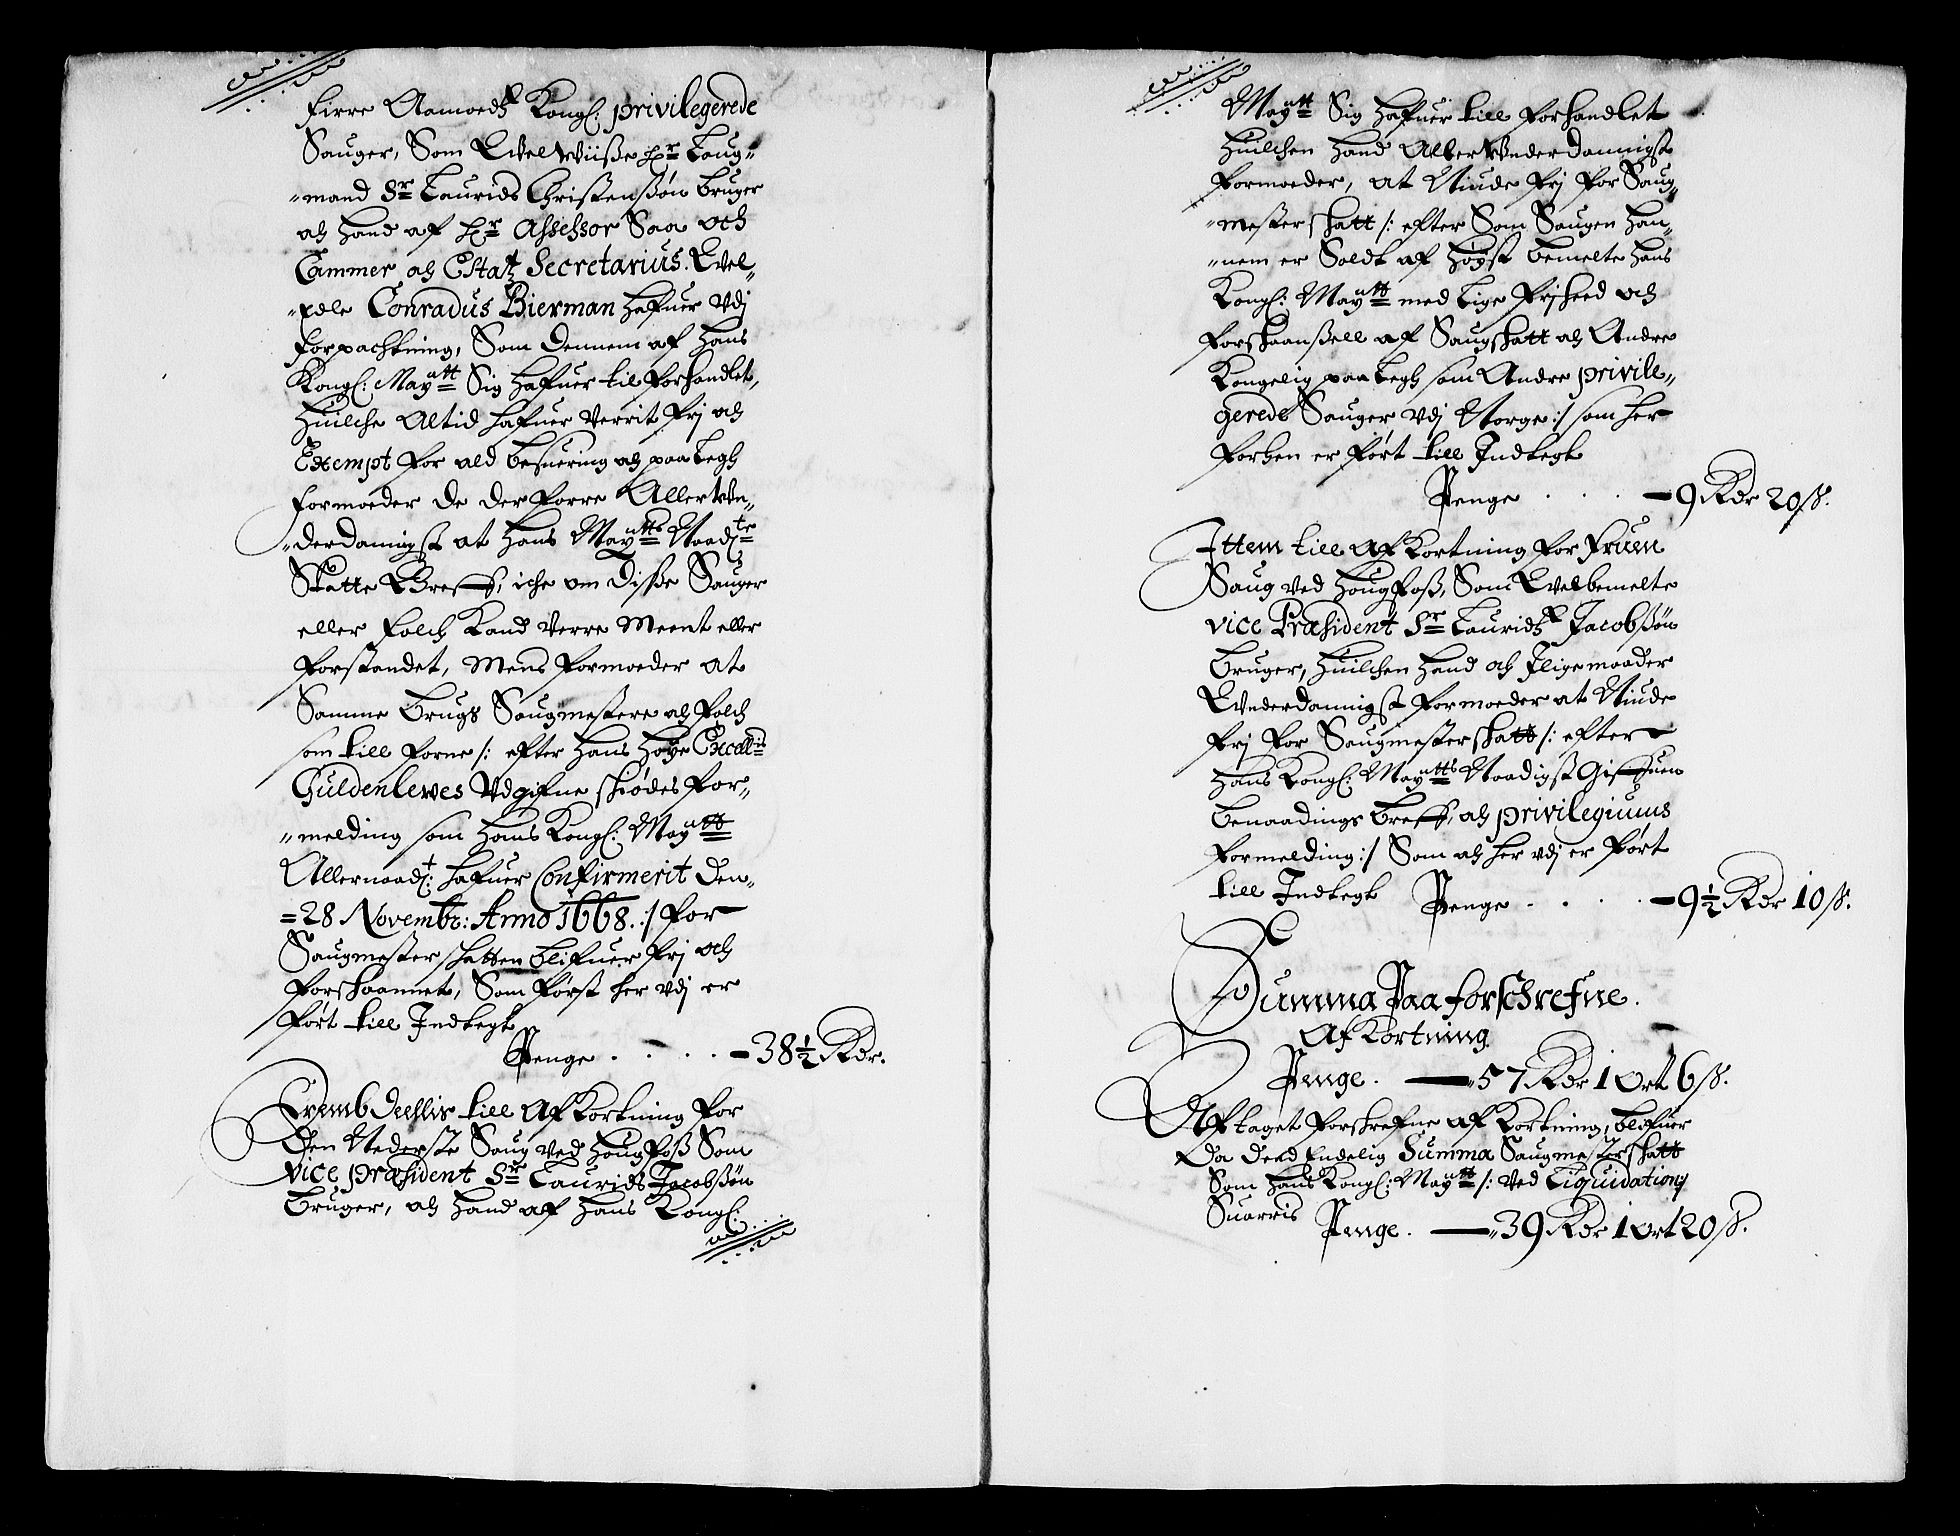 Firre Aamoedz Kongl: privilegerede
Sauger, Som Velwiisße Hr Laug-
-mand Sr Laurids Christenssøn bruger
och hand af Hr Assessor Saa och
Cammer och Estatz Secretarius. Vel-
-Edle Conradus Bierman hafuer vdj
forpachtning, Som dennem af hans
Kongl: Maytt Sig hafuer til forhandlet,
huilche Altid hafuer verrit frj och
Exempt for ald besuering och paaLegh
formoeder de derforre Aller Vn-
-derdanigst at hans Maytts Naadte
Skatte Breff, iche om Disße Sauger
eller folch kand verre Meent eller
forstandet, Mens formoeder at
Samme brugs Saugmestere och folch
som till forne /: efter hans høye Excell:
Guldenlewes Vdgifne skiødes for-
-melding som hans Kongl: Maytt
Allernaadt: hafuer Confirmerit den-
=28 Novembr: Anno 1668. :/ for
Saugmester skatten blifuer frj och
forskaannet, Som først her vdj er
ført till Indtegt
Penge . . . . - 38½ Rdr.
Fremb deellis till AfKortning for
Den Nederste Saug ved Hougfoß Som
vice præsident Sr Laurids Jacobßøn
bruger, och hand af hans Kongl:
Maytt Sig hafuer till forhandlet
huilchen hand Aller Vnderdanigst
formoeder, at Niude frj for Saug-
-mester skatt /: efter Som Saugen han-
-nem er Soldt af høyst bemelte hans
Kongl: Maytt med lige frjheed och
forskaanßell af Saugskatt och Andre
Kongelig paaLegh som Andre privile-
gerede Sauger vdj Norge :/ som her
forhen er ført till Indtegt
Penge . . . - 9 Rdr 20 ß.
Ittem till AfKortning for Fruen
Saug ved Hougfoß, Som Velbemelte
vice Præsident Sr Lauridz Jacobßøn
bruger, huilchen hand och Jlige maader
Vnderdannigst formoeder at Niude
frj for Saugmester skatt /: efter
hans Kongl: Maytts Naadigst Giffuen
benaadings breff, och privilegiums
formelding :/ Som och her vdj er ført
till Indtegt Penge . . . . - 9½ Rdr 10 ß.
Summa Paa forschrefne.
AfKortning
Penge. — 57 Rdr 1 Ort 6 ß.
Aftaget forskrefne afKortning, blifuer
Da Deed Endelig Summa Saugmesterskatt
Som hans Kongl: Maytt /: ved Liquidationj
Suarris Penge. — 39 Rdr 1 Ort 20 ß.